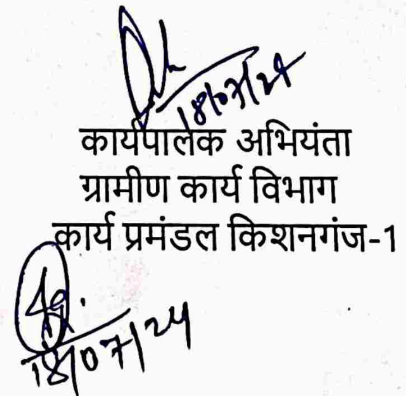 18/07/24
कार्यपालक अभियंता
ग्रामीण कार्य विभाग
कार्य प्रमंडल किशनगंज-1
18/07/24